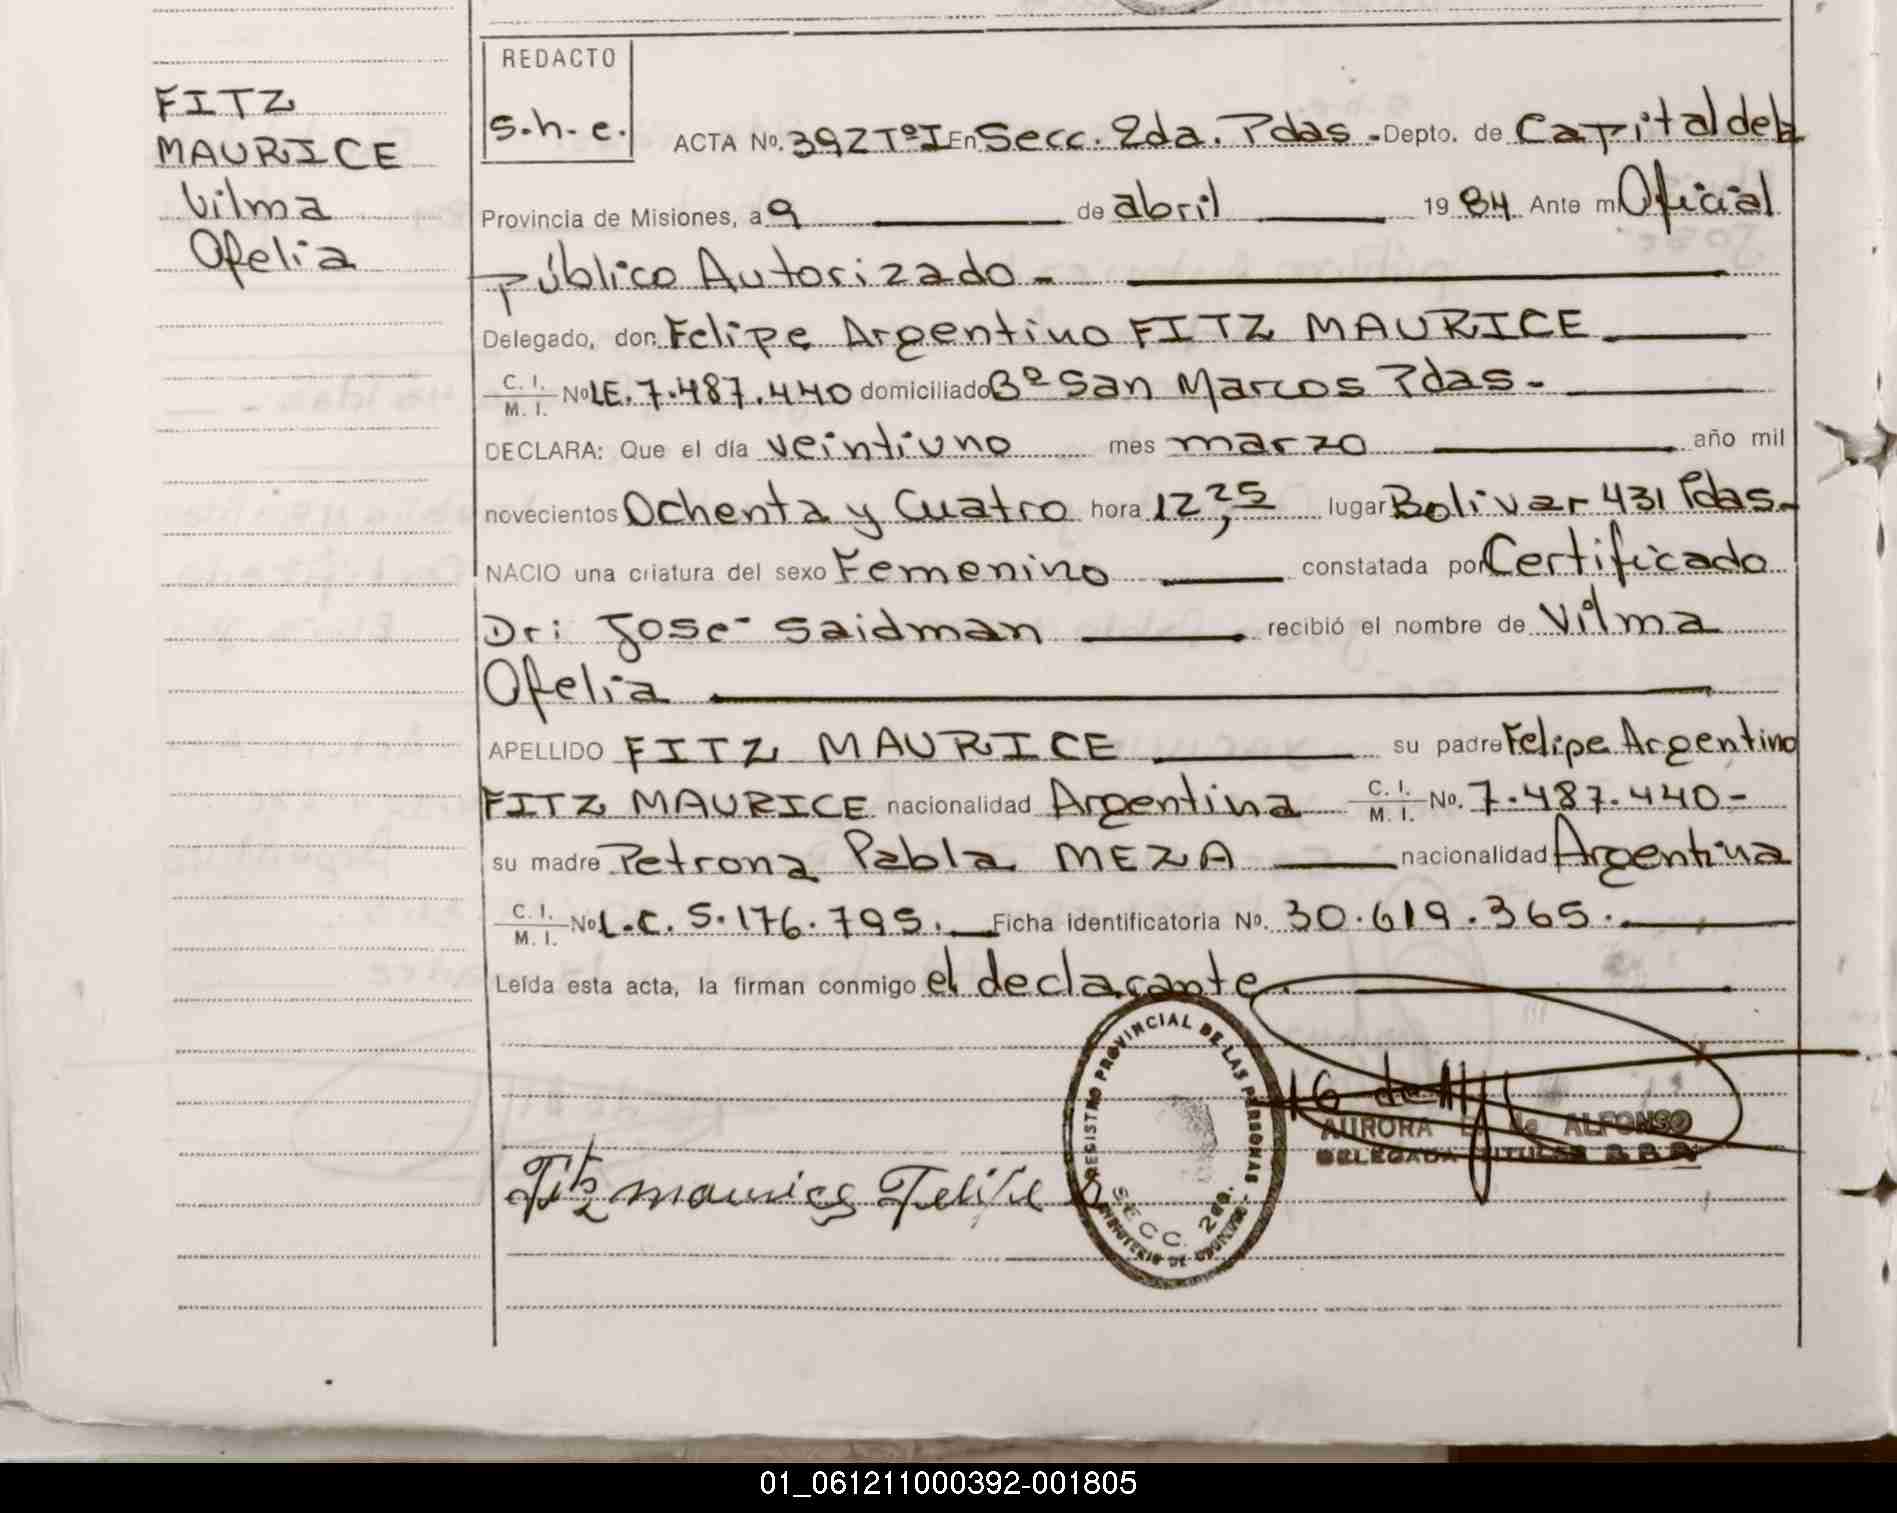 FITZ
MAURICE
Vilma
Ofelia
REDACTO
s.h.e.
ACTA No. 392 TºI En Secc. 2da. Pdas. - Depto. de Capital de la
Provincia de Misiones, a 9 de abril 1984 Ante mí Oficial
Público Autorizado -
Delegado, don: Felipe Argentino FITZ MAURICE
C. I. / M. I. No LE. 7.487.440 domiciliado Bº San Marcos Pdas -
DECLARA: Que el día veintiuno mes marzo año mil
novecientos Ochenta y Cuatro hora 12,25 lugar Bolivar 431 Pdas -
NACIO una criatura del sexo Femenino constatada por Certificado
Dr: José Saidman recibió el nombre de Vilma
Ofelia
APELLIDO FITZ MAURICE su padre Felipe Argentino
FITZ MAURICE nacionalidad Argentina C. I. / M. I. No. 7.487.440 -
su madre Petrona Pabla MEZA nacionalidad Argentina
C. I. / M. I. No L.C. 5.176.795. Ficha identificatoria No. 30.619.365.
Leída esta acta, la firman conmigo el declarante.
REGISTRO PROVINCIAL DE LAS PERSONAS
MINISTERIO DE GOBIERNO
SECC. 2da.
AURORA de ALFONSO
DELEGADA TITULAR
Fitz maurice Felipe
01_061211000392-001805